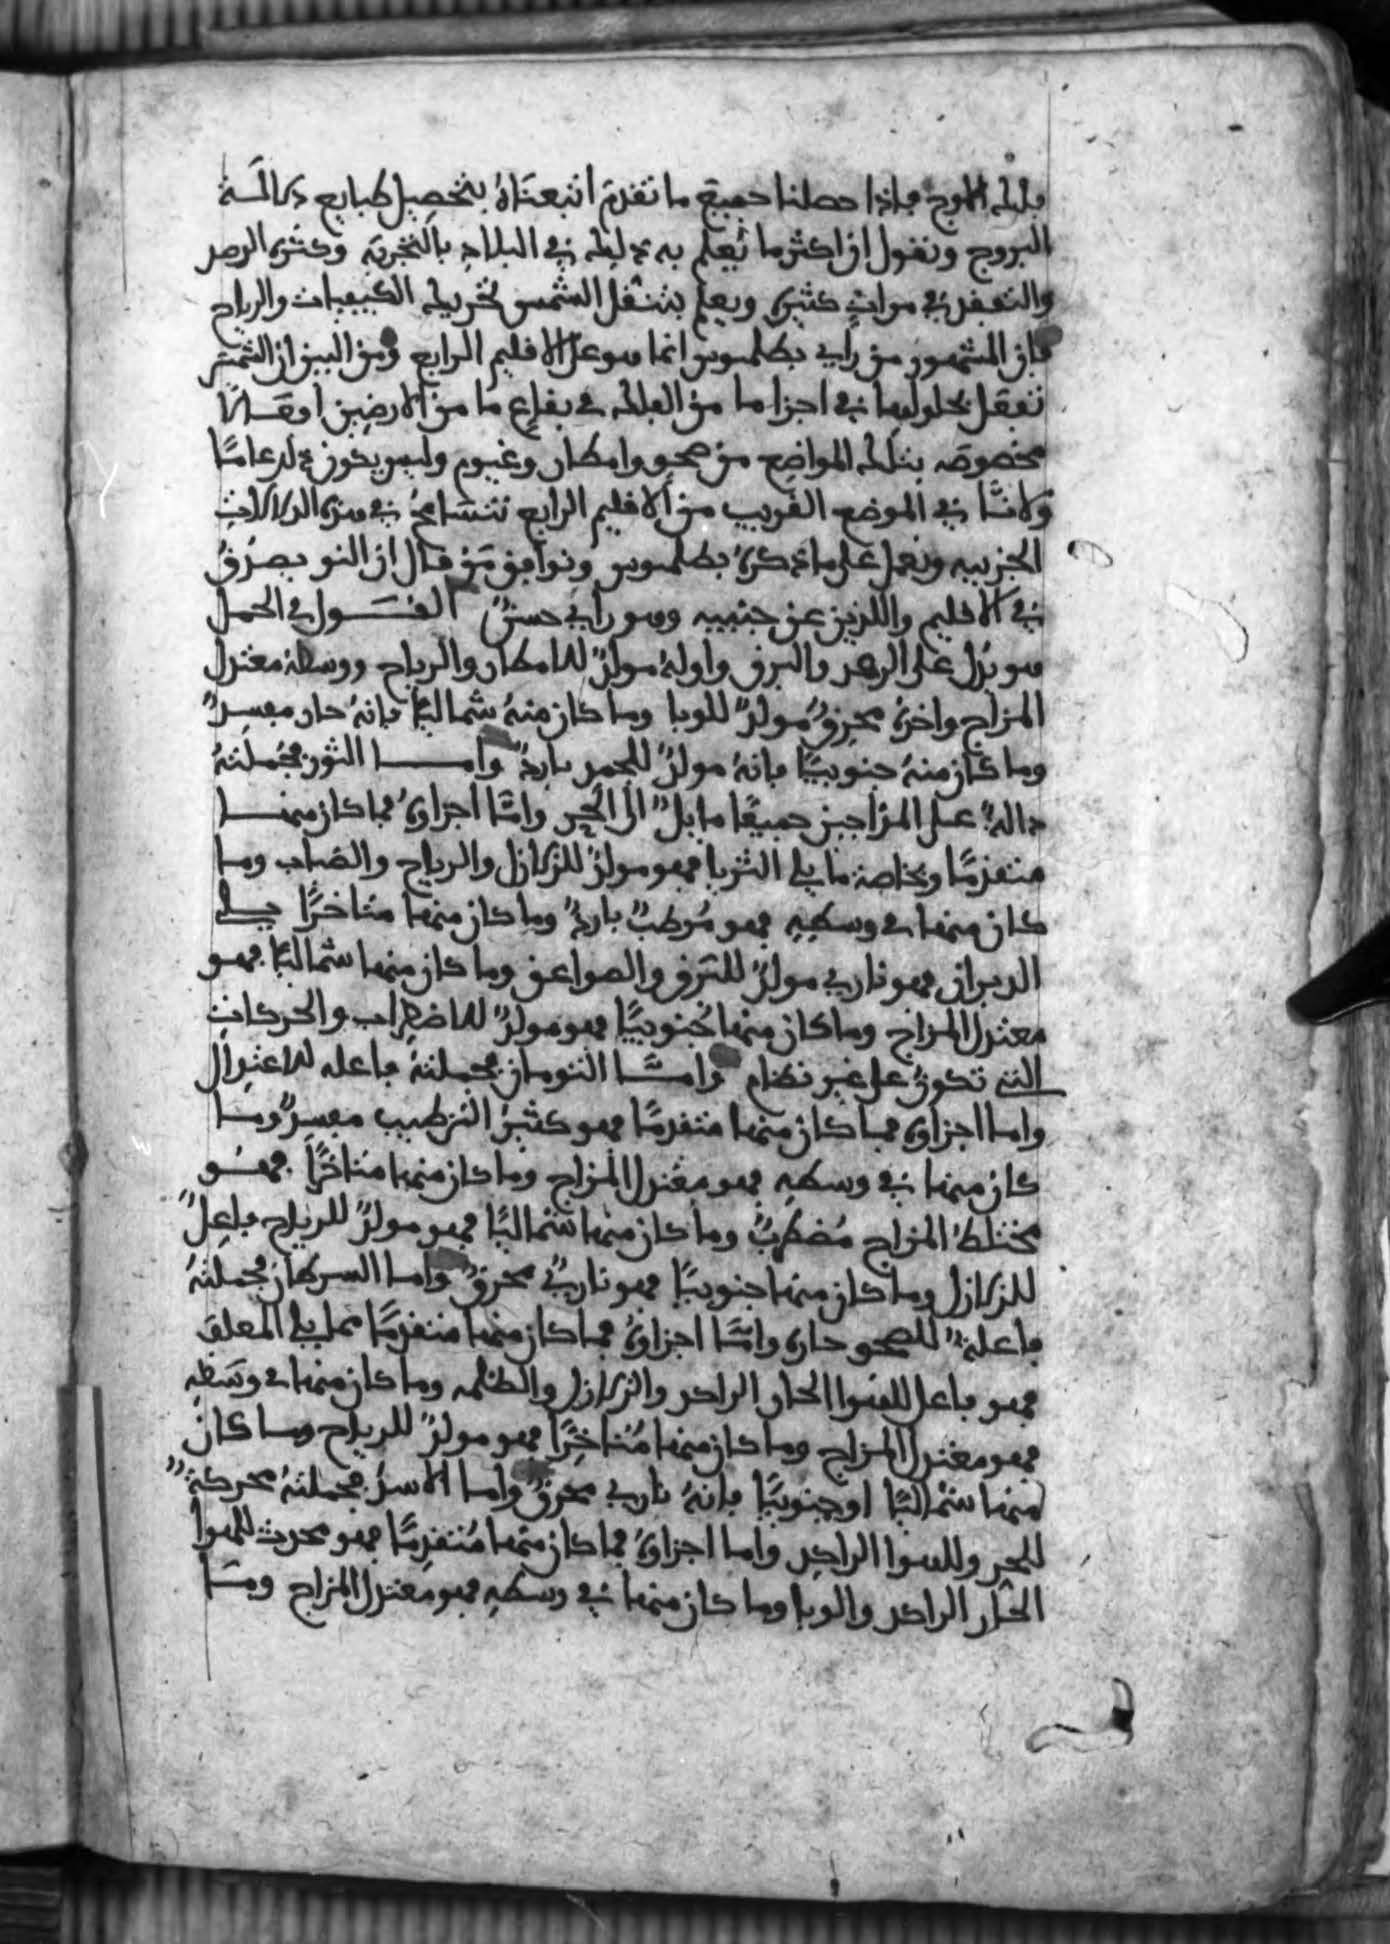 فلك الاوج فاذا حصلنا جميع ما تقدم اتبعناه بتحصيل طبايع دلالة
البروج ونقول ان اكثر ما يعلم به ذلك في البلاد بالتجربة وكثرة الرصد
والتفقد في مرات كثيرة ويعلم بتنقل الشمس تحريك الكيفيات والرياح
فان المشهور من راي بطلميوس انما هو على الاقليم الرابع ومن البين ان الشمس
تفعل بحلولها في اجزا ما من الفلك في بقاع ما من الارضين افعالا
مخصوصة بتلك المواضع من صحو وامطار وغيوم وليس يكون ذلك عاما
ولانا في الموضع القريب من الاقليم الرابع نتسامح في هذه الدلالات
الجزييه ونعمل على ما ذكره بطلميوس ونوافق من قال ان النو يصدق
في الاقليم واللذين عن جنبيه وهو راي حسن القول في الحمل
هو يدل على الرعد والبرق واوله مولد للامطار والرياح ووسطه معتدل
المزاج واخره محرق مولد للوبا وما كان منه شماليا فانه حار مفسد
وما كان منه جنوبيا فانه مولد للجمد بارد واما الثور فجملته
دالة على المزاجين جميعا مايل الى الحر واما اجزاوه فما كان منها
متقدما وبخاصة ما يلي الثريا فهو مولد للزلازل والرياح والضباب وما
كان منها في وسطه فهو مرطب بارد وما كان منها متاخرا يلي
الدبران فهو ناري مولد للبرق والصواعق وما كان منها شماليا فهو
معتدل المزاج وما كان منها جنوبيا فهو مولد للاضطراب والحركات
التي تكون على غير نظام واما التومان فجملته فاعله للاعتدال
واما اجزاوه فما كان منها متقدما فهو كثير الترطيب مفسد وما
كان منها في وسطه فهو معتدل المزاج وما كان منها متاخرا فهو
مختلط المزاج مضطرب وما كان منها شماليا فهو مولد للرياح فاعل
للزلازل وما كان منها جنوبيا فهو ناري محرق واما السرطان فجملته
فاعلة للصحو حاره واما اجزاوه فما كان منها متقدما مما يلي المعلف
فهو فاعل للهوا الحار الراكد والزلازل والظلمه وما كان منها في وسطه
فهو معتدل المزاج وما كان منها متاخرا فهو مولد للرياح وما كان
منها شماليا او جنوبيا فانه ناري محرق واما الاسد فجملته محركة
للحر وللهوا الراكد واما اجزاوه فما كان منها متقدما فهو محدث للهوا
الحار الراكد والوبا وما كان منها في وسطه فهو معتدل المزاج وما